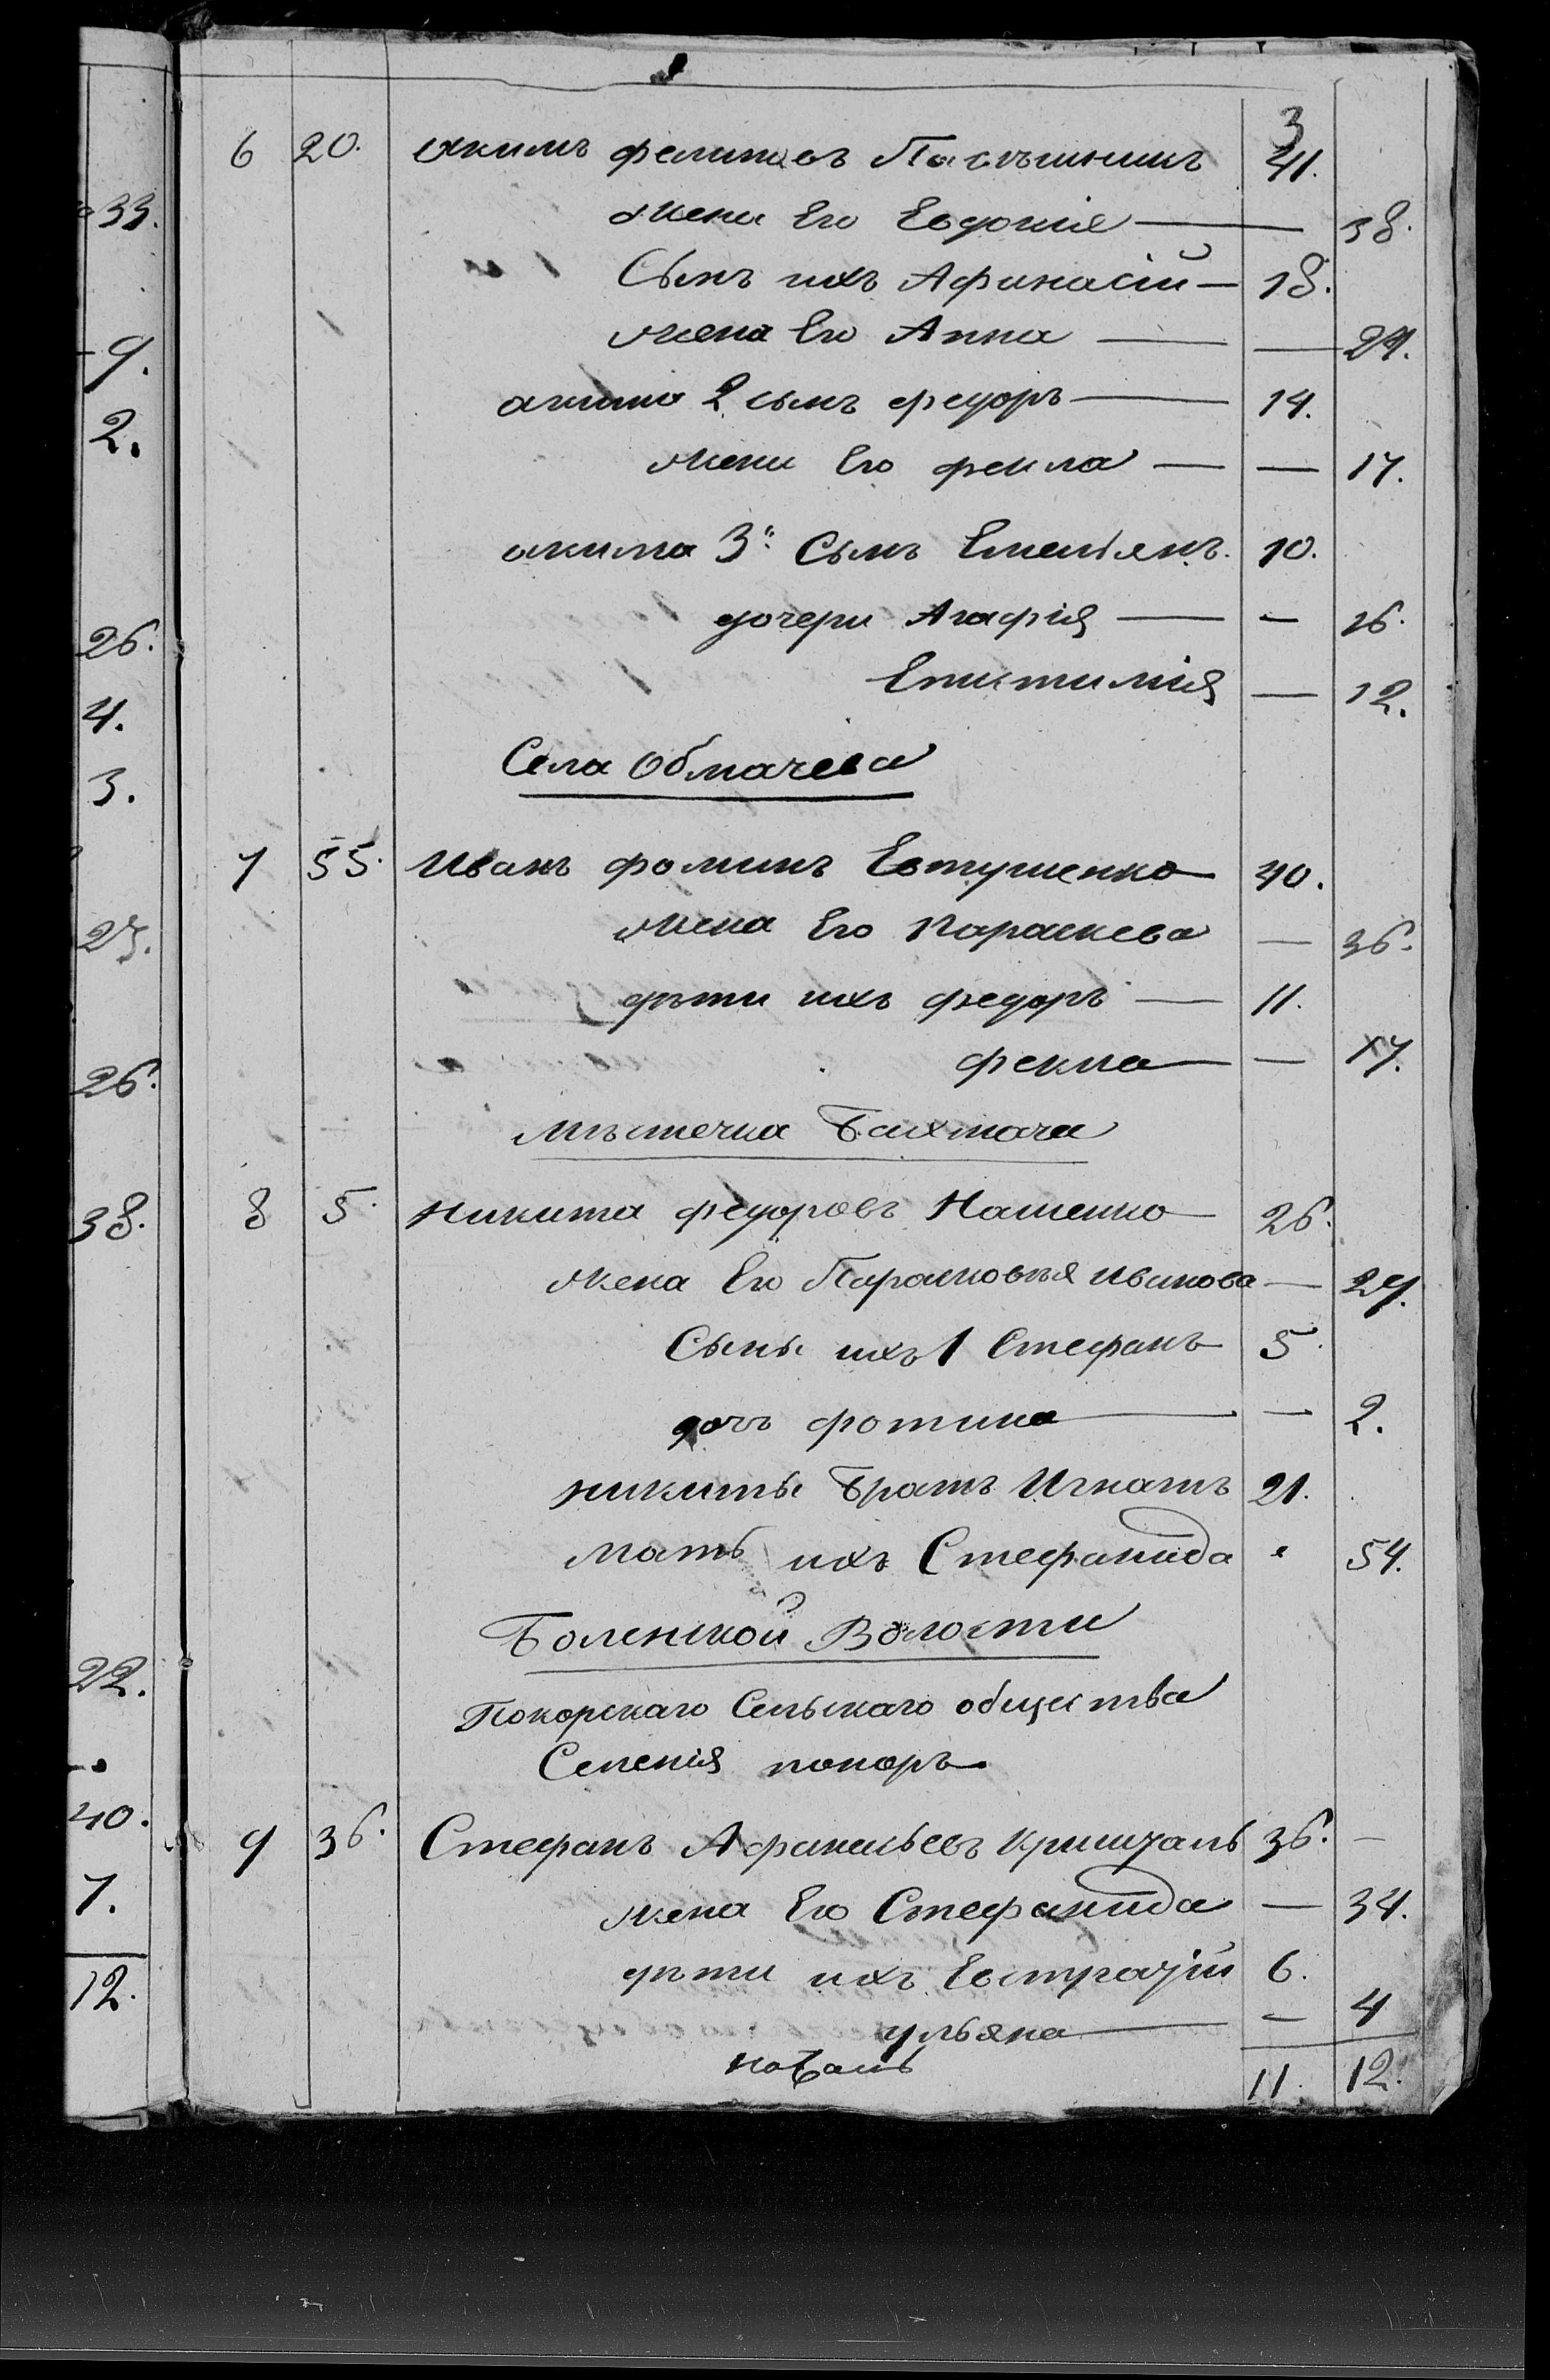 3
6 20. акимъ филиповъ Пасѣшникъ 41.
жена Его Евдокия — 38.
Сынъ ихъ Афанасій — 18.
жена Его Анна — — 24.
акима 2 сынъ федоръ — 14.
жена Его фекла — — 17.
акима 3й Сынъ Емельянъ. 10.
дочери Агафія — — 16.
Епитимия — 12.
Села Обмачева
7 55. Иванъ фоминъ Евтушенко 40.
жена Его Параскева — 36.
дѣти ихъ федоръ — 11.
фекла — — 17.
мѣстечка Бахмача
8 5. Никита федоровъ Нашенко 26.
жена Его Парасковья иванова — 27.
Сыны ихъ 1 Стефанъ 5.
дочь фотина — — 2.
никиты Братъ Игнатъ 21.
Мать ихъ Стефанида 54.
Волости
Покорскаго Сельскаго общества
Селенія покоръ
9 36. Стефанъ Афанасьевъ 36. —
жена Его Стефанида — 34.
дѣти ихъ Евстрафій 6.
ульяна — — 4
11. 12.
33.
9.
2.
26.
4.
3.
27.
26.
38.
22.
40.
7.
12.